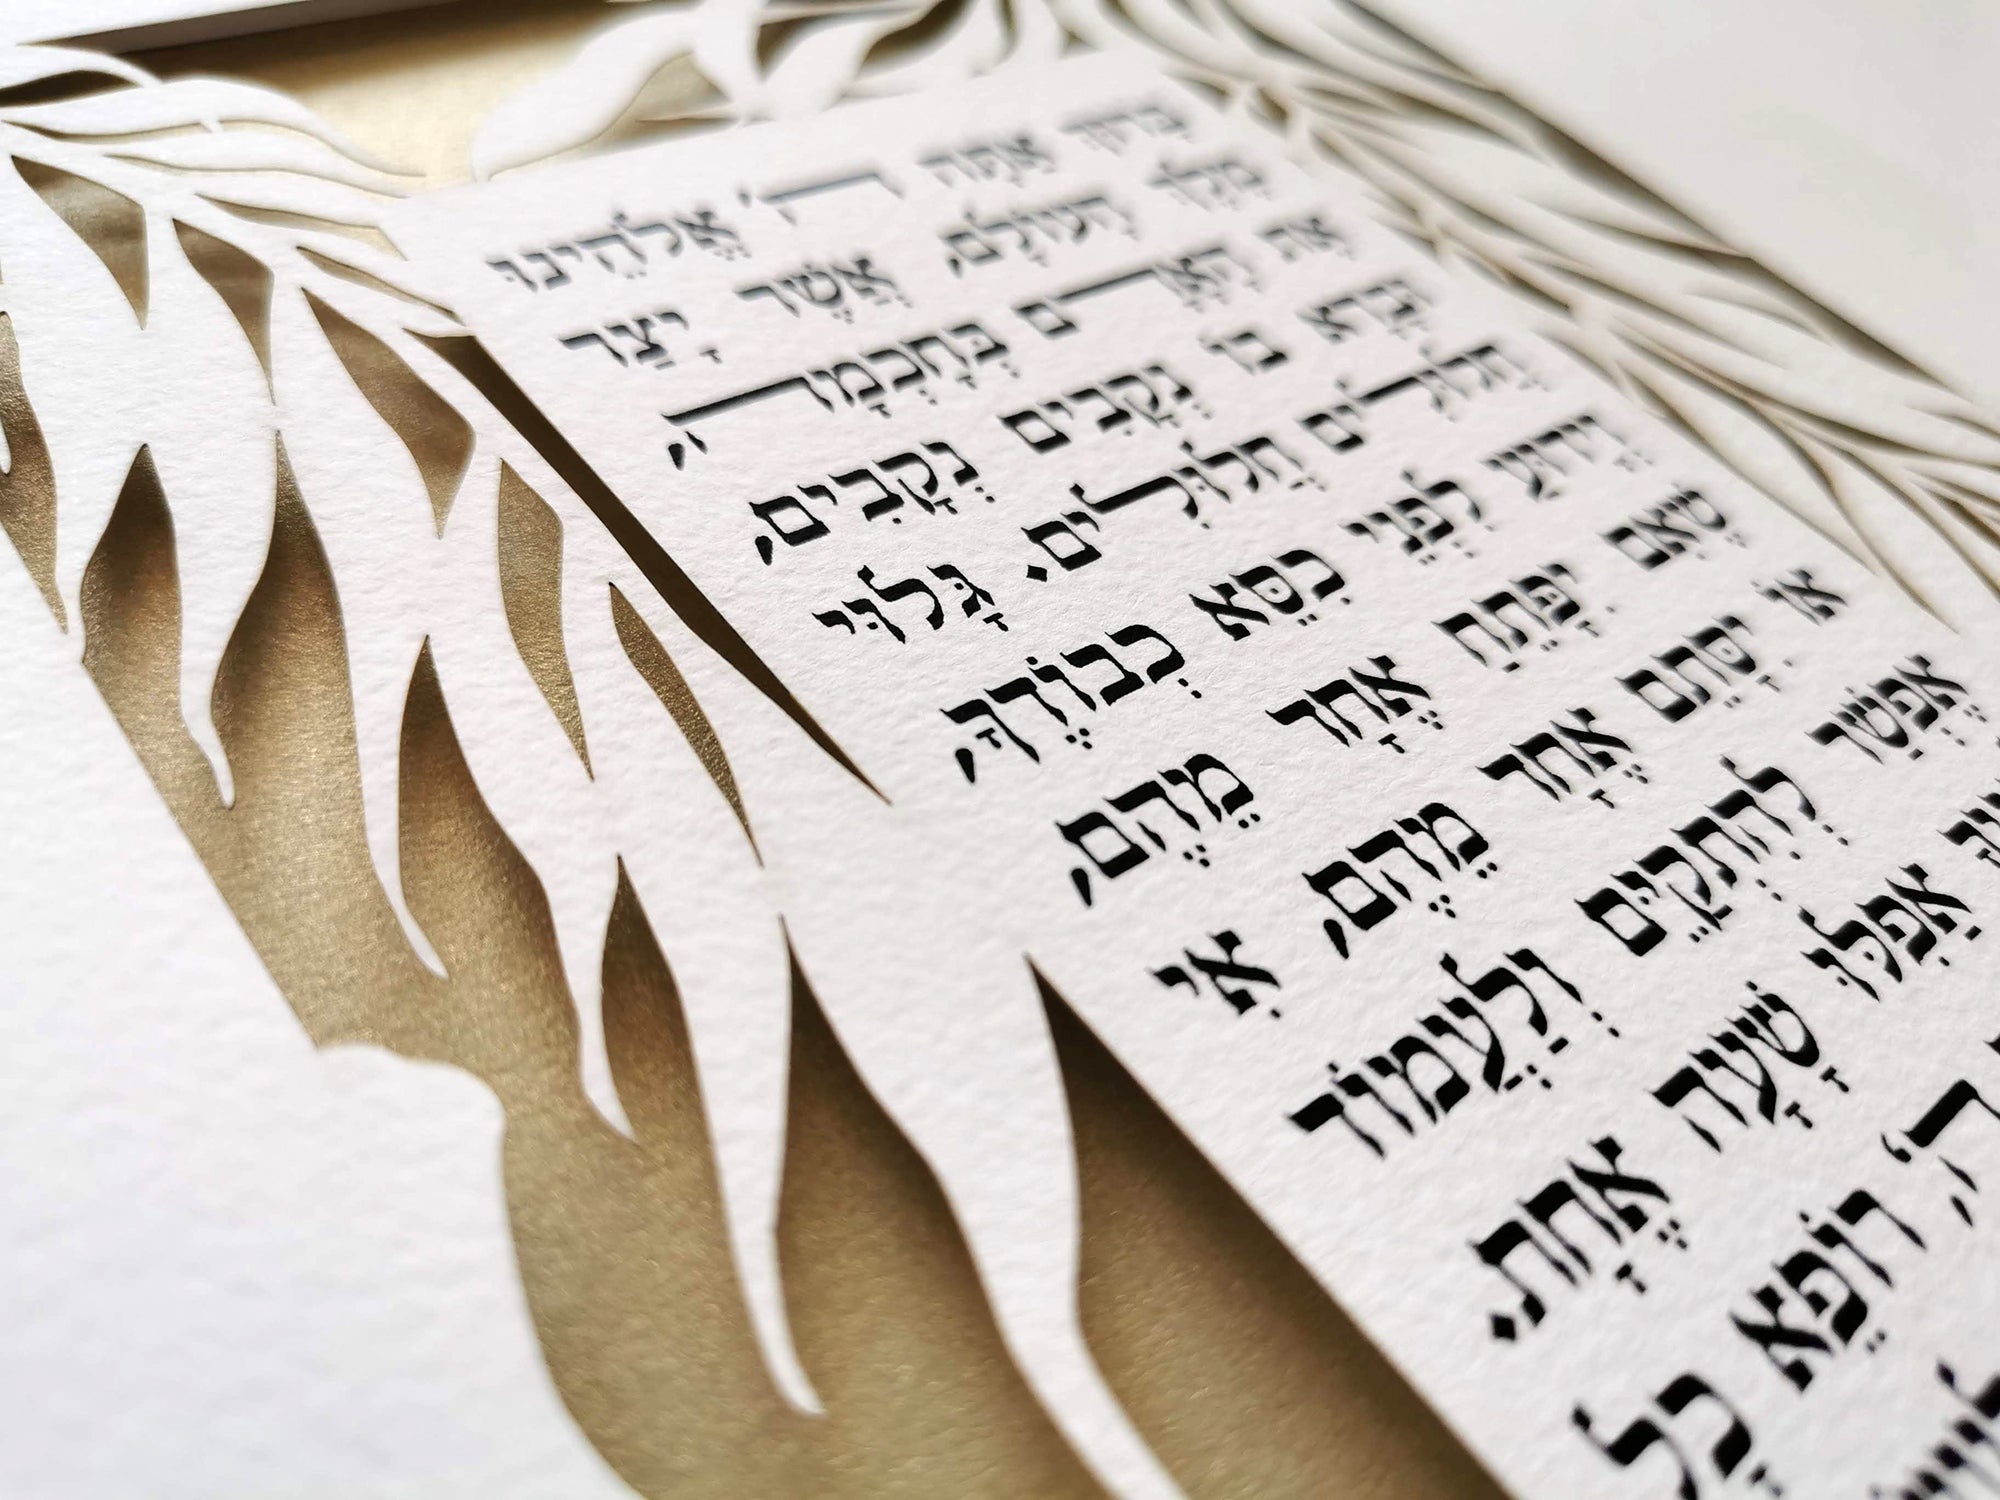 בָּרוּךְ אַתָּה ה' אֱלֹהֵינוּ
מֶלֶךְ הָעוֹלָם, אֲשֶׁר יָצַר
אֶת הָאָדָם בְּחָכְמָה,
וּבָרָא בוֹ נְקָבִים נְקָבִים,
חֲלוּלִים חֲלוּלִים. גָּלוּי
וְיָדוּעַ לִפְנֵי כִסֵּא כְבוֹדֶךָ,
שֶׁאִם יִפָּתֵחַ אֶחָד מֵהֶם,
אוֹ יִסָּתֵם אֶחָד מֵהֶם, אִי
אֶפְשַׁר לְהִתְקַיֵּם וְלַעֲמוֹד
אֲפִלּוּ שָׁעָה אֶחָת.
ה', רוֹפֵא כָל